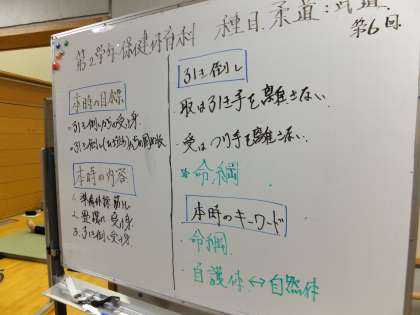 第2学年 保健体育科 種目 柔道:武道
第6回
本時の目標
・引き倒しからの受け身
本時の内容
1. 準備体操 筋トレ
2. 受け身
3. 引き倒し 受け身
引き倒し
取は引き手を離さない
・受はつり手を離さない
命綱
本時のキーワード
・命綱
・自護体↔自然体